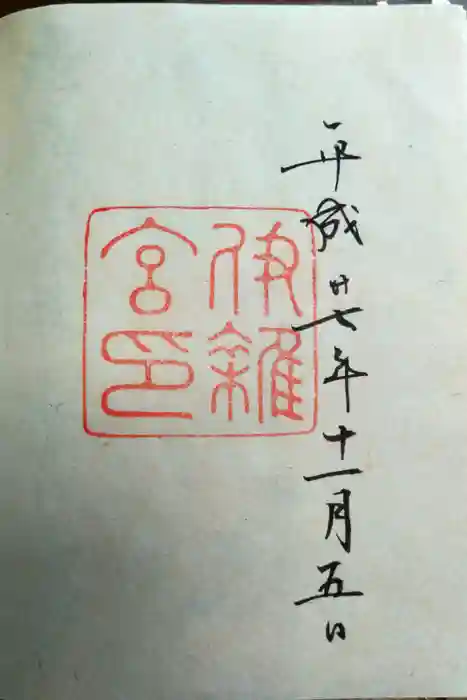 平成廿七年十一月五日
伊雜
宮印